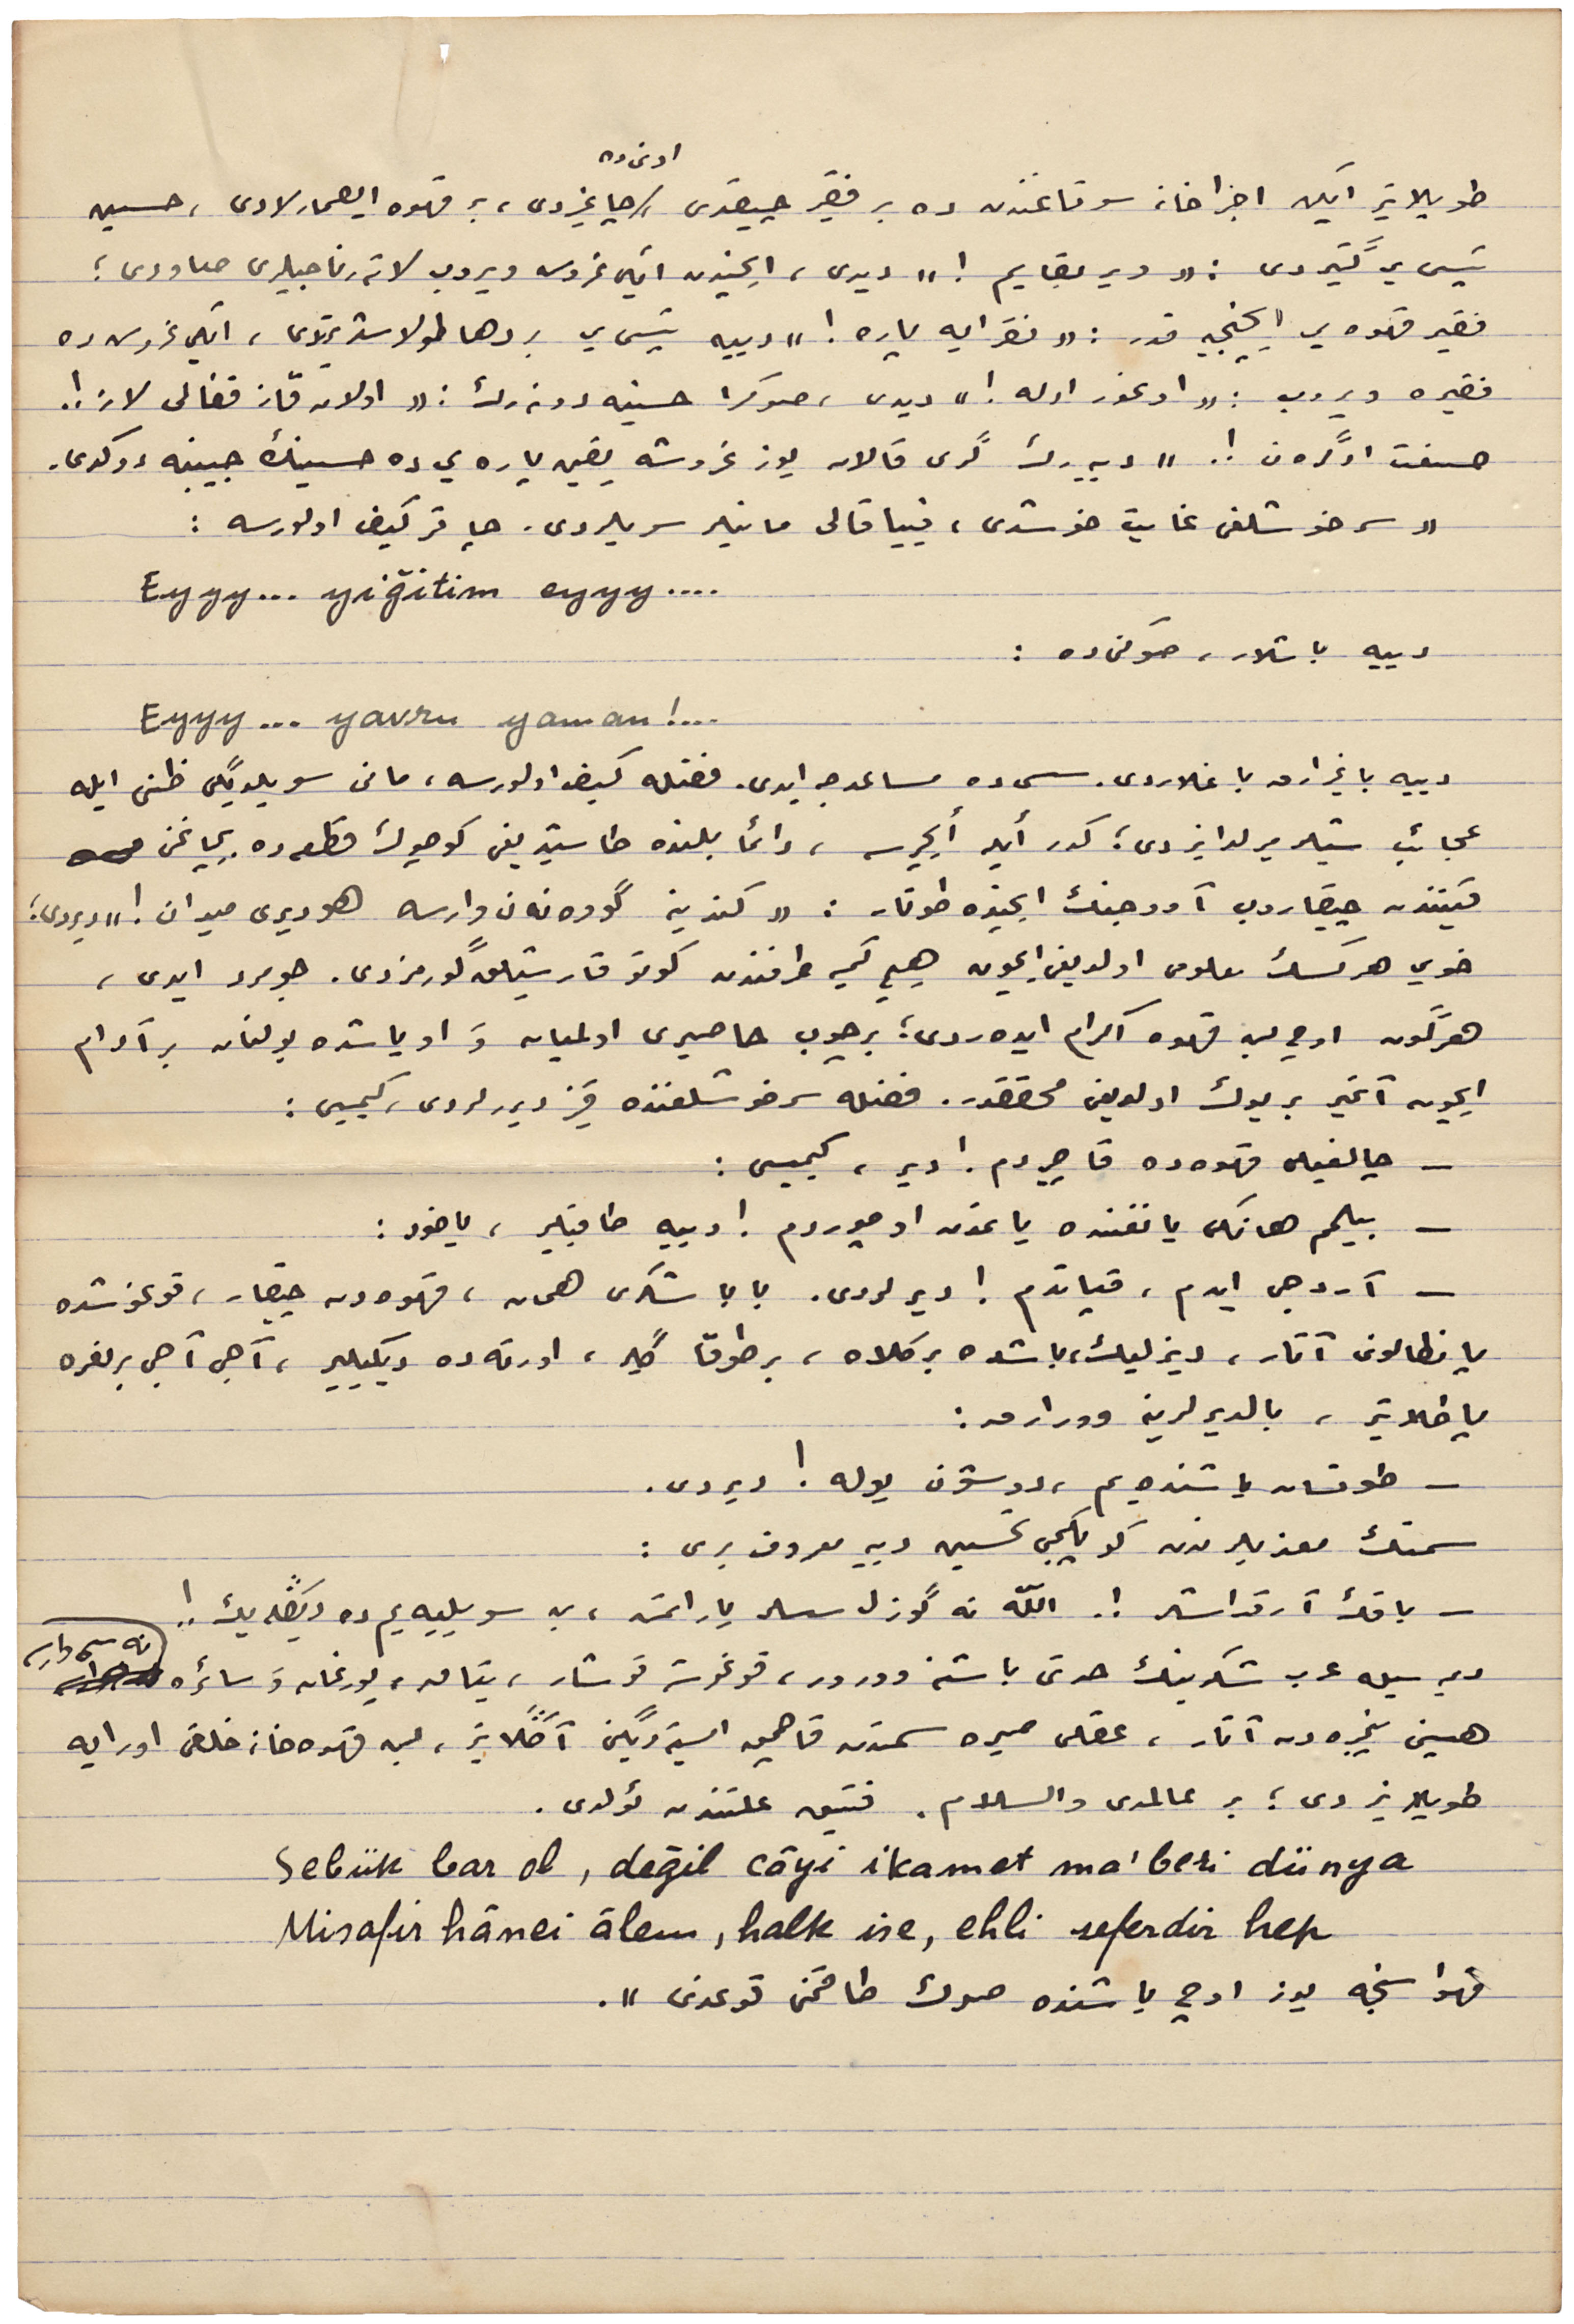 اونی ده
طوپلاتیر ایكن اجزاخانه سوقاغندن ده بر فقیر چیقدی، چاغیردی، بر قهوه ایصمارلادی، حسین
تپسی یی گتیردی : « ویر بقایم ! » دیدی، ایچندن ایكی غروش ویروب لاترناجیلری صاودی ؛
فقیر قهوه یی ایچنجیه قدر : « نفر ایه پاره ! » دییه تپسی یی بر دها طولاشدیرتدی، ایكی غروش ده
فقیره ویروب : « اوغور اوله ! » دیدی، صوكرا حسینه دونه رك : « اولان قاز قفالی لاز !.
صنعت اوگرن !. » دییه رك گری قالان یوز غروشه یقین پاره یی ده حسینك جیبنه دوكدی.
« سرخوشلغی غایت خوشدی، قییاقالی مانیلر سویلردی. چاقر كیف اولورسه :
Eyyy... yiğitim eyyy....
دییه باشلار، صوكی ده :
Eyyy... yavru yaman!...
دییه باغیرارق باغلاردی. سسی ده مساعدجه ایدی. فضله كیف اولورسه، مانی سویلدیگی ظنی ایله
عجائب شیلر یرلدایزدی ؛ كدر ایله ایچرسه، دائما بلنده طاشیدیغی كوچوك قطعه ده بیچاغنی
قیننده چیقاروب آووجنك ایچنده طوتار : « كندینه گووه نه ن وارسه هودیری میدان ! » دیردی ؛
خویی هركسك معلومی اولدیغی ایچون هیچ كیمسه طرفندن كوتو قارشیلق گورمزدی. جومرد ایدی،
هرگون اوچ بش قهوه اكرام ایده ردی ؛ بر چوپ حاصیری اولمیان و او یاشده بولنان بر آدام
ایچون آغیر بر یوك اولدیغی محققدر. فضله سرخوشلغنده قیز دیررلردی، كیمیسی :
— چالغیلی قهوه ده قاچیردم ! دیر، كیمیسی :
— بیلمم هانكی یانغنده یاغدن اوچوردم ! دییه طاقیلیر، یاخود :
— آردجی ایدم، قیاتدم ! دیرلردی. بابا شكری همان، قهوه دن چیقار، قوغوشده
پانطالونی آتار، دیزلیك، باشده بر كلاه، بر طوقا گلیر، اورته ده دیكیلیر، آجی آجی بر نعره
پاطلاتیر، بالدیرلرینه وورارق :
— طوقسان یاشنده یم، دوشون یوله ! دیردی.
سمتك معذیلرندن كوپكجی تحسین دییه معروف بری :
— باقك آرقداشلر !. الله نه گوزل سسلر یاراتمش، بن سویلییه یم ده دیكله یك !.
دیر سیله عرب شكرینك حدتی باشنه وورور، قوغوشه قوشار، یتاق، یورغان و سائره نه سی وارسه
هپسنی پنجره دن آتار، عقلی صیره سمتدن قاچمق ایستدیگنی آكلاتیر، بش قهوه خانه خلقی اورایه
طوپلانیردی ؛ بر عالمدی والسلام. فتیق علتندن ئولدی.
Sebük bar ol, değil câyi ikamet ma'beri dünya
Misafir hânei âlem, halk ise, ehli seferdir hep
قهوا سنجه یوز اوچ یاشنده صوك طاقمنی قوغدی ».